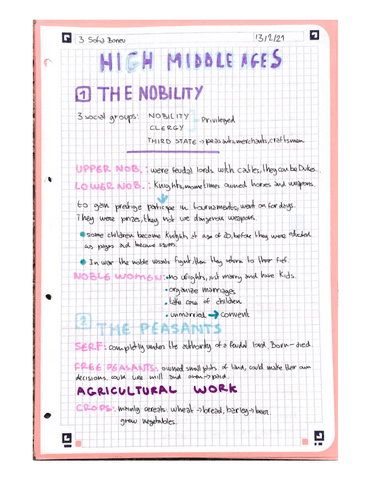 3 Sofía 13/2/21
HIGH MIDDLE AGES
1 THE NOBILITY
3 social groups: NOBILITY
CLERGY
Privileged
THIRD STATE → peasants, merchants, craftsmen
UPPER NOB.: were feudal lords with castles, they can be Dukes
LOWER NOB.: Knights, some times owned horses and weapons.
to gain prestige participe in tournaments, went on for days.
They were prizes, they not use dangerous weapons.
some children become Knights at age of 20, before they were
as pages and became
In war the noble vassals fight, then they return to their fief.
NOBLE WOMEN: no rights, just marry and have kids.
organize marriages
take care of children
unmarried → convent
2 THE PEASANTS
SERF: completly under the authority of a feudal lord born-died.
FREE PEASANTS: owned small plots of land, could make their own
decisions. could use mill and oven → paid.
AGRICULTURAL WORK
CROPS: mainly cereals: wheat → bread, barley → beer.
grow vegetables.